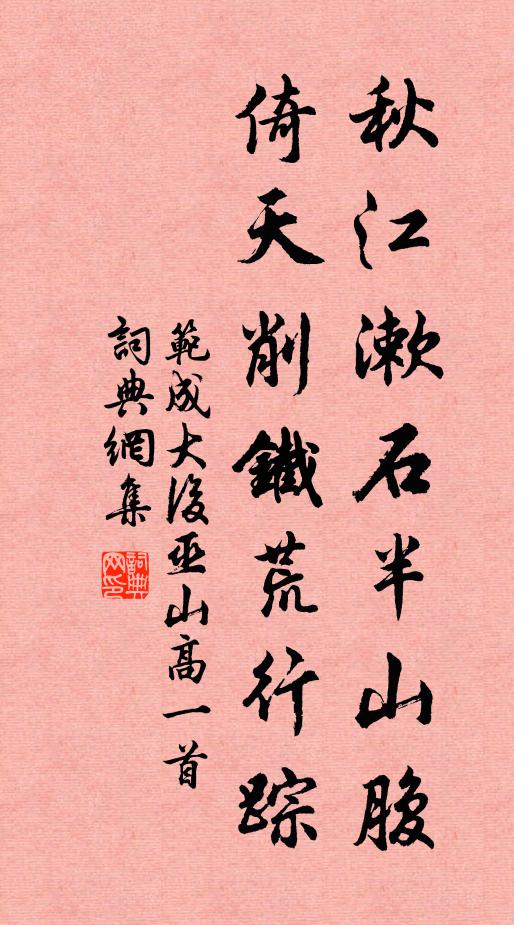 秋江漱石半山腹
倚天削鐵荒行踪
範成大後巫山高一首
詞典網集
詞典网印